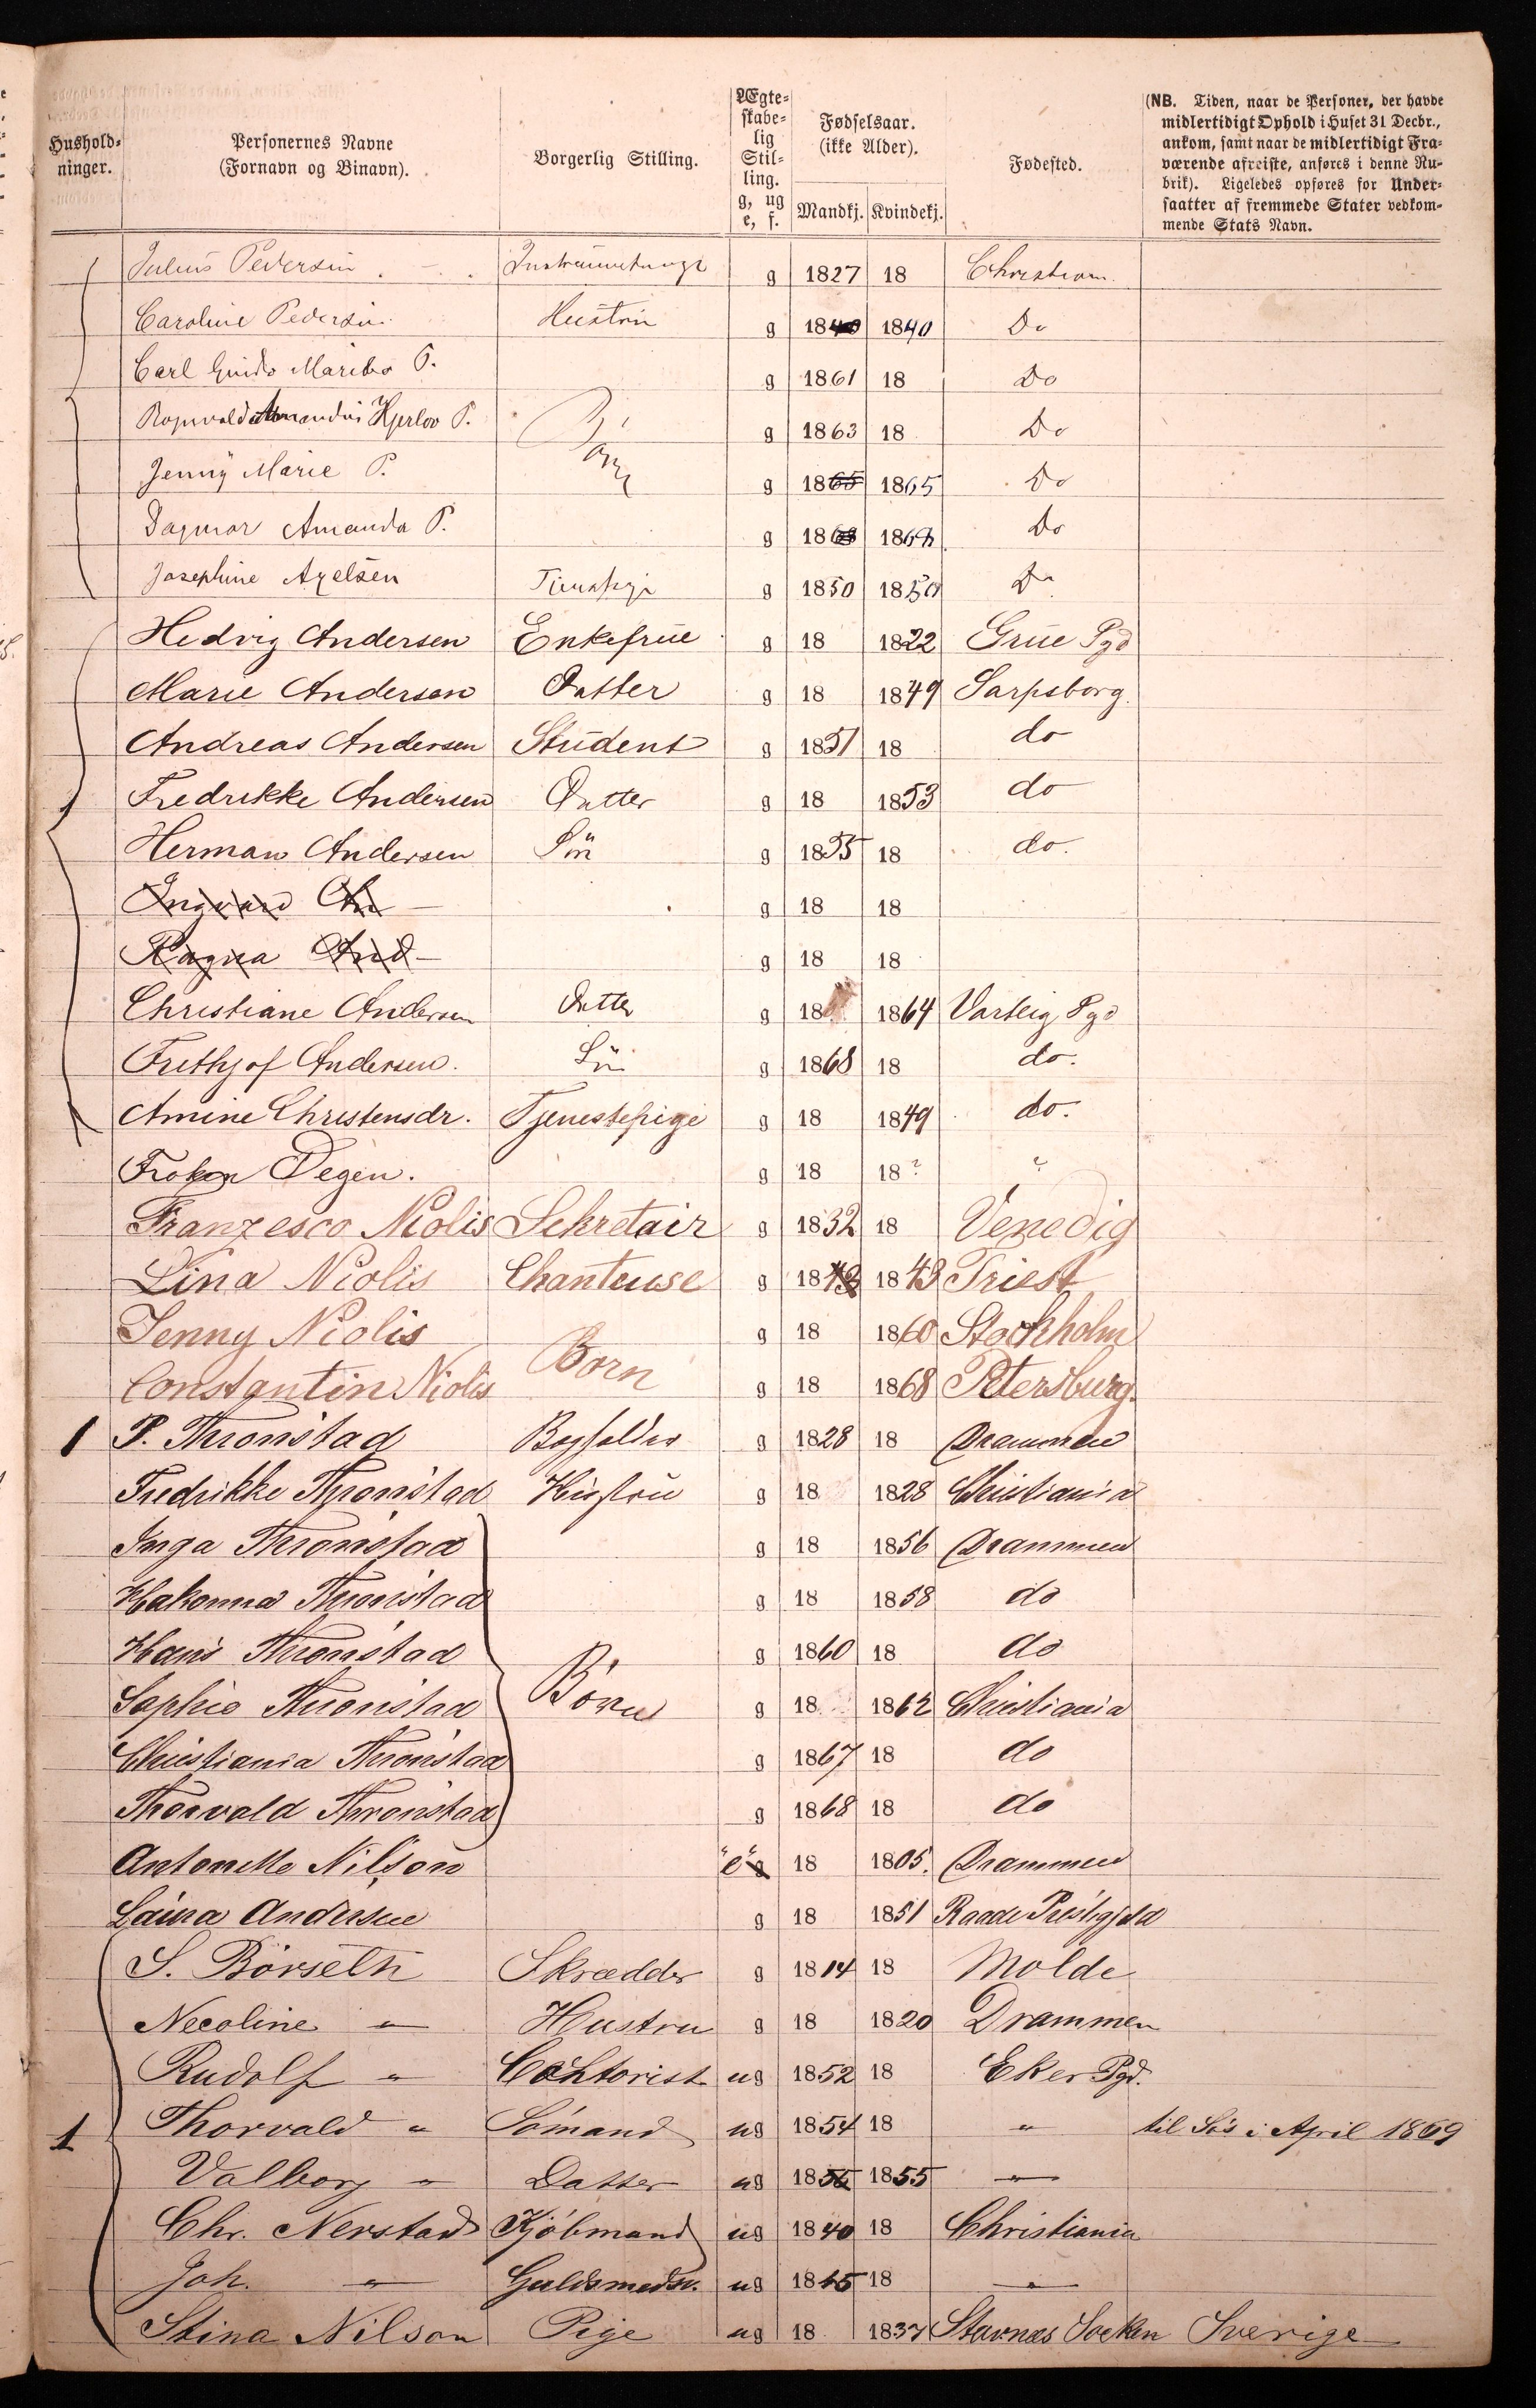 Hushold-
ninger.
Personernes Navne
(Fornavn og Binavn).
Borgerlig Stilling.
Ægte-
skabe-
lig
Stil-
ling.
g, ug
e, f.
Fødselsaar.
(ikke Alder).
Mandkj. Kvindekj.
Fødested.
(NB. Tiden, naar de Personer, der havde
midlertidigt Ophold i Huset 31 Decbr.,
ankom, samt naar de midlertidigt Fra-
værende afreiste, anføres i denne Ru-
brik). Ligeledes opføres for Under-
saatter af fremmede Stater vedkom-
mende Stats Navn.
Julius Pedersen g 1827 18
Caroline Pedersen Hustru g 18 1840 Do
Carl Guido P. g 1861 18 Do
Hjerlov P. g 1863 18 Do
Jenny Marie P. g 1865 1865 Do
Dagmar Amanda P. g 18 1868 Do
Josephine Axelsen g 1850 1850 Do
Hedvig Andersen Enkefrue g 18 1822 Grue Pgd
Marie Andersen Datter g 18 1849 Sarpsborg
Andreas Andersen Student g 1851 18 do
Fredrikke Andersen Datter g 18 1853 do
Herman Andersen Sön g 1855 18 do.
Ingvard An — g 18 18
Ragna And — g 18 18
Christiane Andersen Datter g 18 1864 Varteig Pgd
Frethjof Andersen. Sön g 1868 18 do.
Amine Christensdr. Tjenestepige g 18 1849 do.
Frøken Degen. g 18 18? ?
Franzesco Niolis Sekretair g 1832 18 Venedig
Lina Niolis Chanteuse g 1843 1843 Triest
Jenny Niolis g 18 1860 Stockholm
Born
Constantin Niolis g 18 1868 Petersburg.
1 P. Thronstad g 1828 18 Drammen
Fredrikke Thronstad Hustru g 18 1828 Christiania
Inga Thronstad g 18 1856 Drammen
Hakonna Thronstad g 18 1858 do
Hans Thronstad g 1860 18 do
Sophie Thronstad Børn g 18 1862 Christiania
Christiania Thronstad g 1867 18 do
Thorvald Thronstad g 1868 18 do
Antonette Nilson "e" g 18 1805. Drammen
Laura Andersen g 18 1851 Raade Præstegjeld
S. Börseth Skrædder g 1814 18 Molde
Necoline " Hustru g 18 1820 Drammen
Rudolf " Contorist ug 1852 18 Eker Pgd.
1 Thorvald " Sömand ug 1854 18 " til Søs i April 1869
Valborg " Datter ug 1855 1855 "
Chr. Nerstad Kjöbmand ug 1840 18 Christiania
Joh. " Guldsmedsv. ug 1845 18 "
Stina Nilson Pige ug 18 1837 Stavnæs Socken Sverige